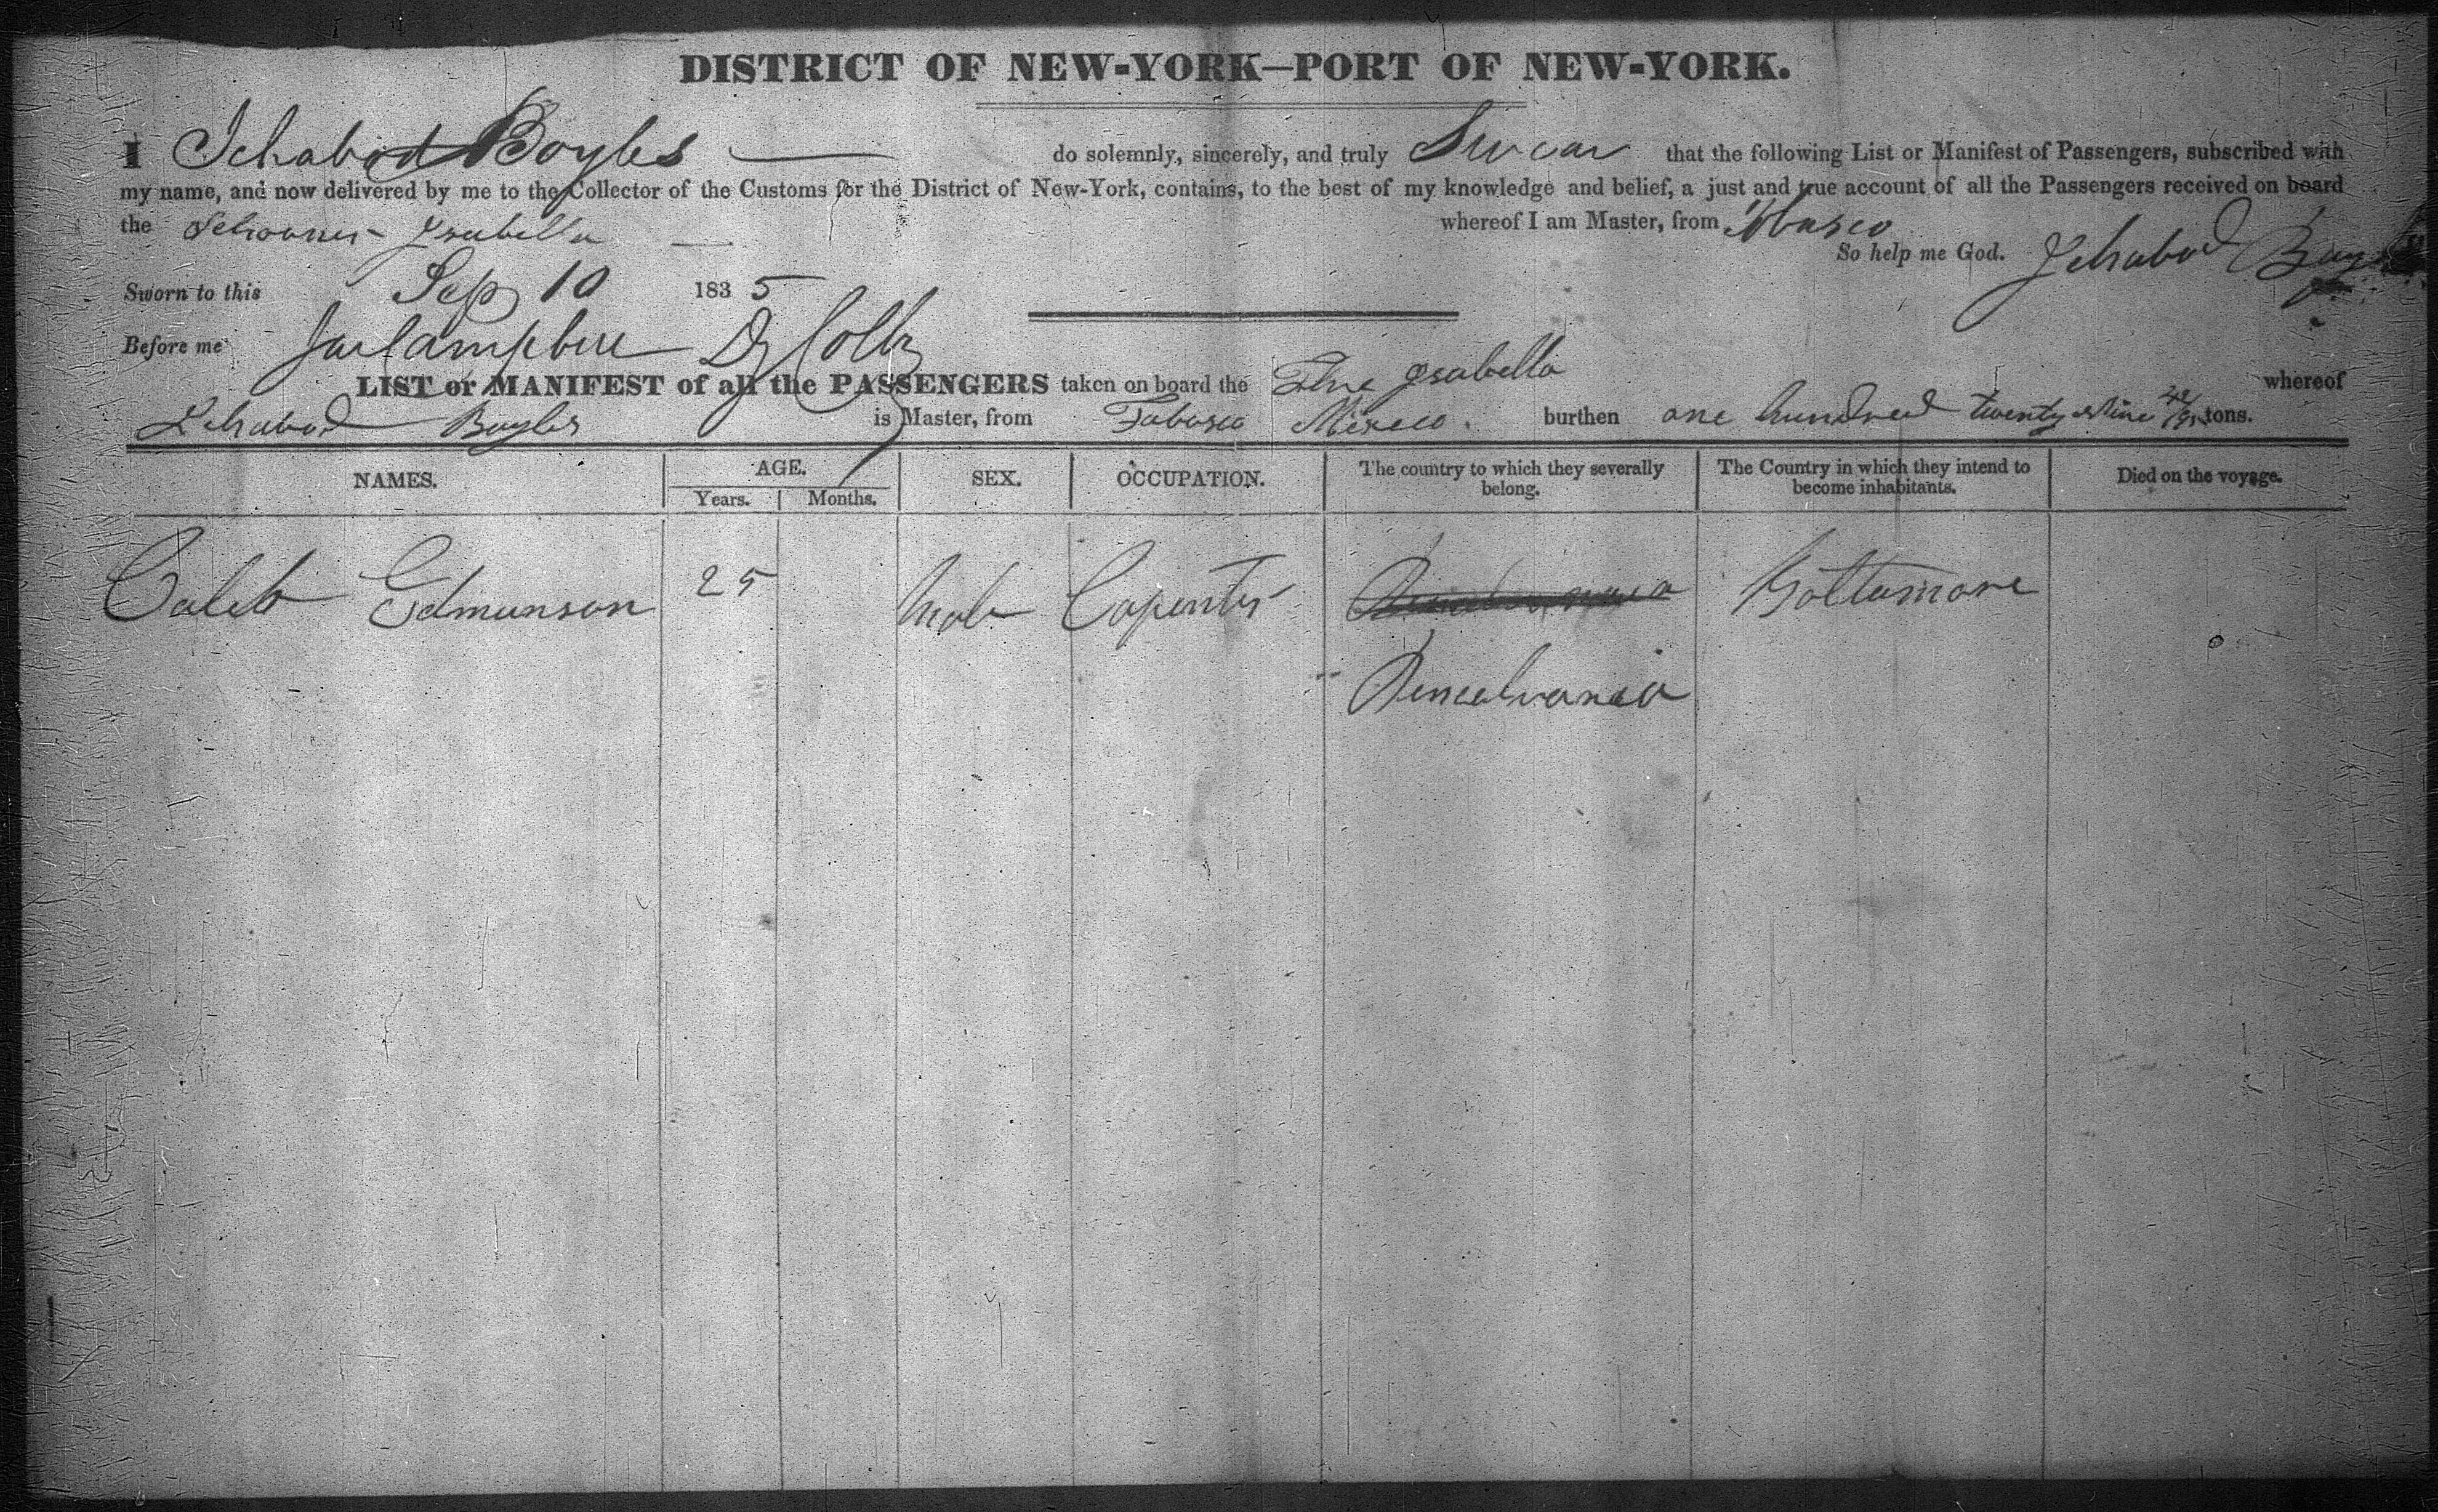 DISTRICT OF NEW-YORK—PORT OF NEW-YORK.
I Ichabod Boyles do solemnly, sincerely, and truly Swear that the following List or Manifest of Passengers, subscribed with
my name, and now delivered by me to the Collector of the Customs for the District of New-York, contains, to the best of my knowledge and belief, a just and true account of all the Passengers received on board
the Schooner Ysabella whereof I am Master, from Tobasco
So help me God. Ichabod
Sworn to this Sep 10 1835
Before me Jas Campbell Dy Coll
LIST or MANIFEST of all the PASSENGERS taken on board the Ysabella whereof
Ichabod Boyles is Master, from Tobasco Mexico. burthen one hundred twenty nine tons.
NAMES. AGE. SEX. OCCUPATION. The country to which they severally belong. The Country in which they intend to become inhabitants. Died on the voyage.
Years. Months.
Caleb Edmunson 25 Male Capenter Boltumore
0
Penselvania